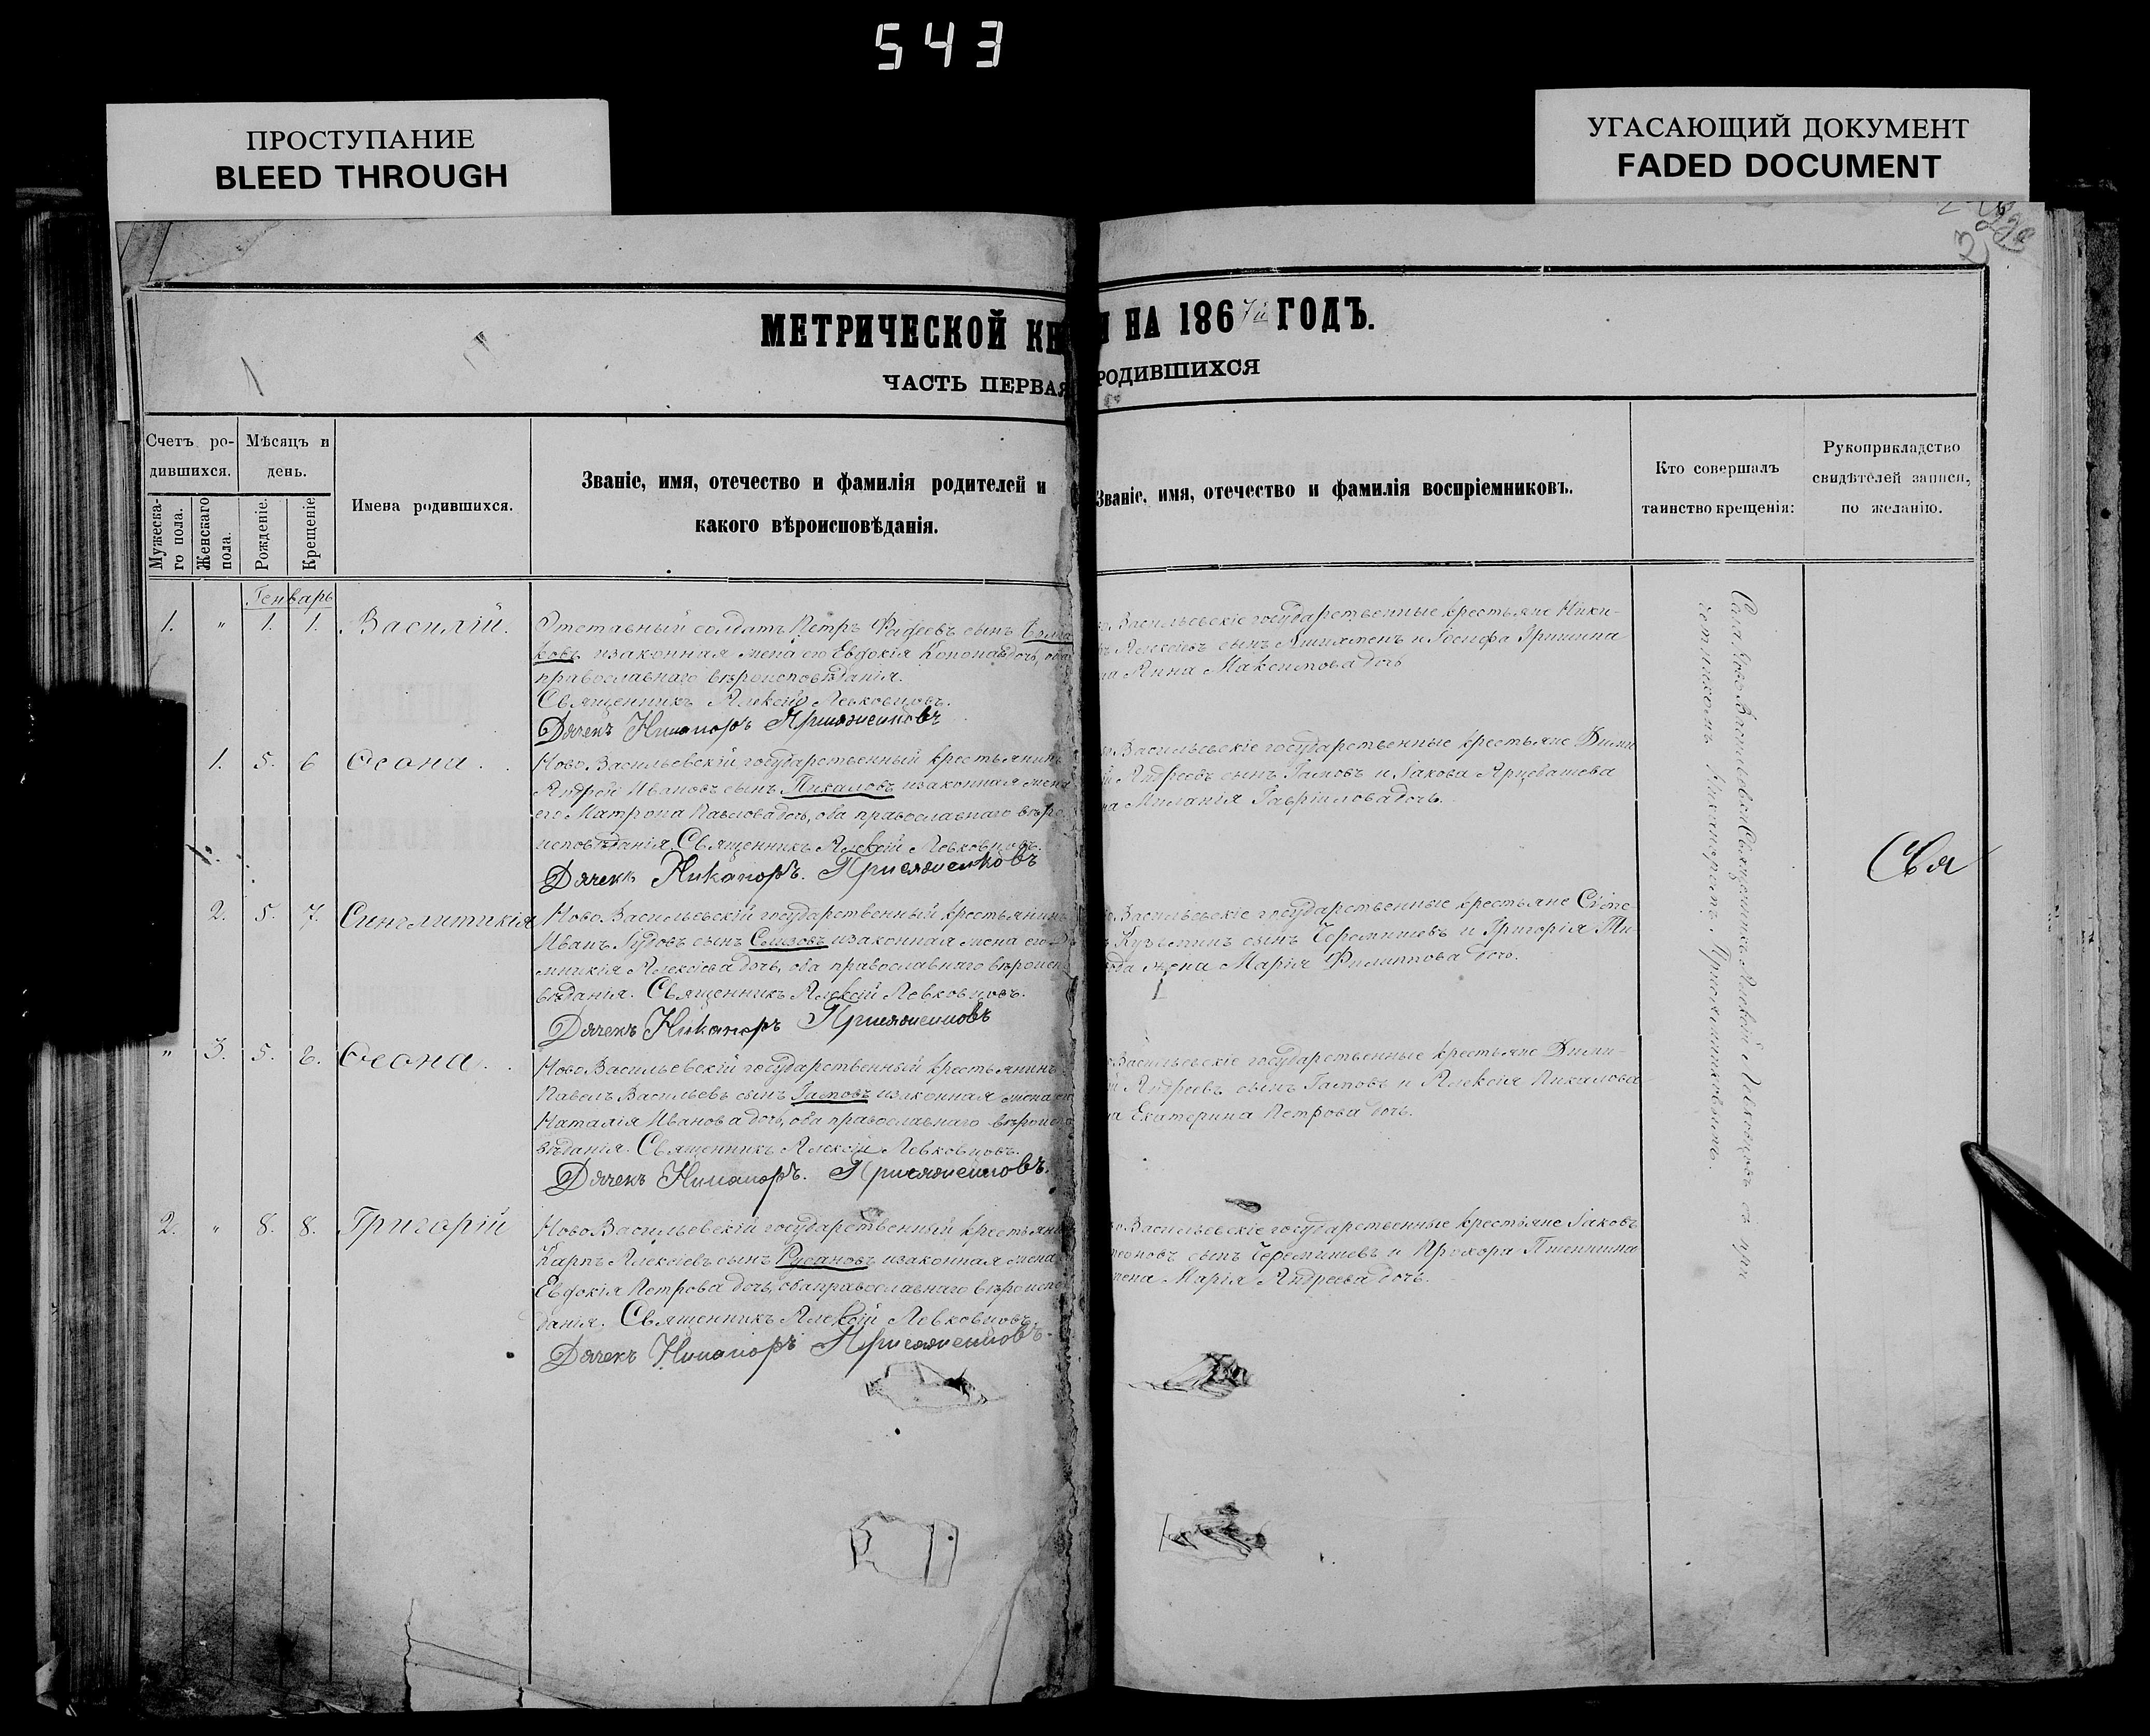 543
ПРОСТУПАНИЕ
BLEED THROUGH
УГАСАЮЩИЙ ДОКУМЕНТ
FADED DOCUMENT
МЕТРИЧЕСКОЙ КН
И НА 1867й ГОДЪ.
ЧАСТЬ ПЕРВАЯ
РОДИВШИХСЯ
Счетъ ро-
дившихся.
Мужеска-
го пола.
Женскаго
пола.
Мѣсяцъ и
день.
Рожденіе.
Крещеніе
Имена родившихся.
Званіе, имя, отечество и фамилія родителей и
какого вѣроисповѣданія.
Званіе, имя, отечество и фамилія воспріемниковъ.
Кто совершалъ
таинство крещенія:
Рукоприкладство
свидѣтелей записи,
по желанію.
Генварь
1. " 1. 1. Василій.
Отставный солдатъ Петръ Фадеевъ сынъ
ковъ и законная жена его Евдокія дочь, оба
православнаго вѣроисповѣданія.
Священникъ Алексій Левковцовъ.
Дячекъ Никаноръ Присяженковъ
Васильевскіе государственные крестьяне Ники-
Алексѣевъ сынъ и Іосифа Гришина
на Анна Максимова дочь
1. 5. 6 Ѳеона.
Ново Васильевскій государственный крестьянинъ
Андрей Ивановъ сынъ Пихаловъ и законная жена
его Матрона Павлова дочь, оба православнаго вѣро
исповѣданія. Священникъ Алексій Левковцовъ.
Дячекъ Никаноръ. Присяженковъ
Васильевскіе государственные крестьяне Дими
й Андреевъ сынъ Гамовъ и Іакова Арцебашева
на Миланія Гавріилова дочь.
2. 5. 7. Синглитикія
Ново Васильевскій государственный крестьянинъ
Иванъ сынъ и законная жена его
мникія Алексѣева дочь, оба православнаго вѣроиспо
вѣданія. Священникъ Алексій Левковцовъ.
Дячекъ Никаноръ Присяженковъ
Васильевскіе государственные крестьяне Симе
Кузьминъ сынъ Черемишевъ и Григорія Ти-
жена Марія Филиппова дочь.
" 3. 5. 8. Ѳеона.
Ново Васильевскій государственный крестьянинъ
Павелъ Васильевъ сынъ Гамовъ и законная жена его
Наталія Иванова дочь, оба православнаго вѣроиспо
вѣданія. Священникъ Алексій Левковцовъ.
Дячекъ Никаноръ. Присяженковъ.
Васильевскіе государственные крестьяне Дими-
й Андреевъ сынъ Гамовъ и Алексія Пихалова
на Екатерина Петрова дочь.
2. " 8. 8. Григорій
Ново Васильевскій государственный крестьяни
Карпъ Алексѣевъ сынъ Русановъ и законная жена
Евдокія Петрова дочь, оба православнаго вѣроиспо
данія. Священникъ Алексій Левковцовъ.
Дячекъ Никаноръ Присяженковъ.
Васильевскіе государственные крестьяне Іаковъ
меоновъ сынъ Черемишевъ и Прохора Пшенкина
жена Марія Андреева дочь.
Села Ново Васильевки Священникъ Алексій Левковцовъ съ при
четникомъ Никаноромъ Присяженковымъ.
Свя